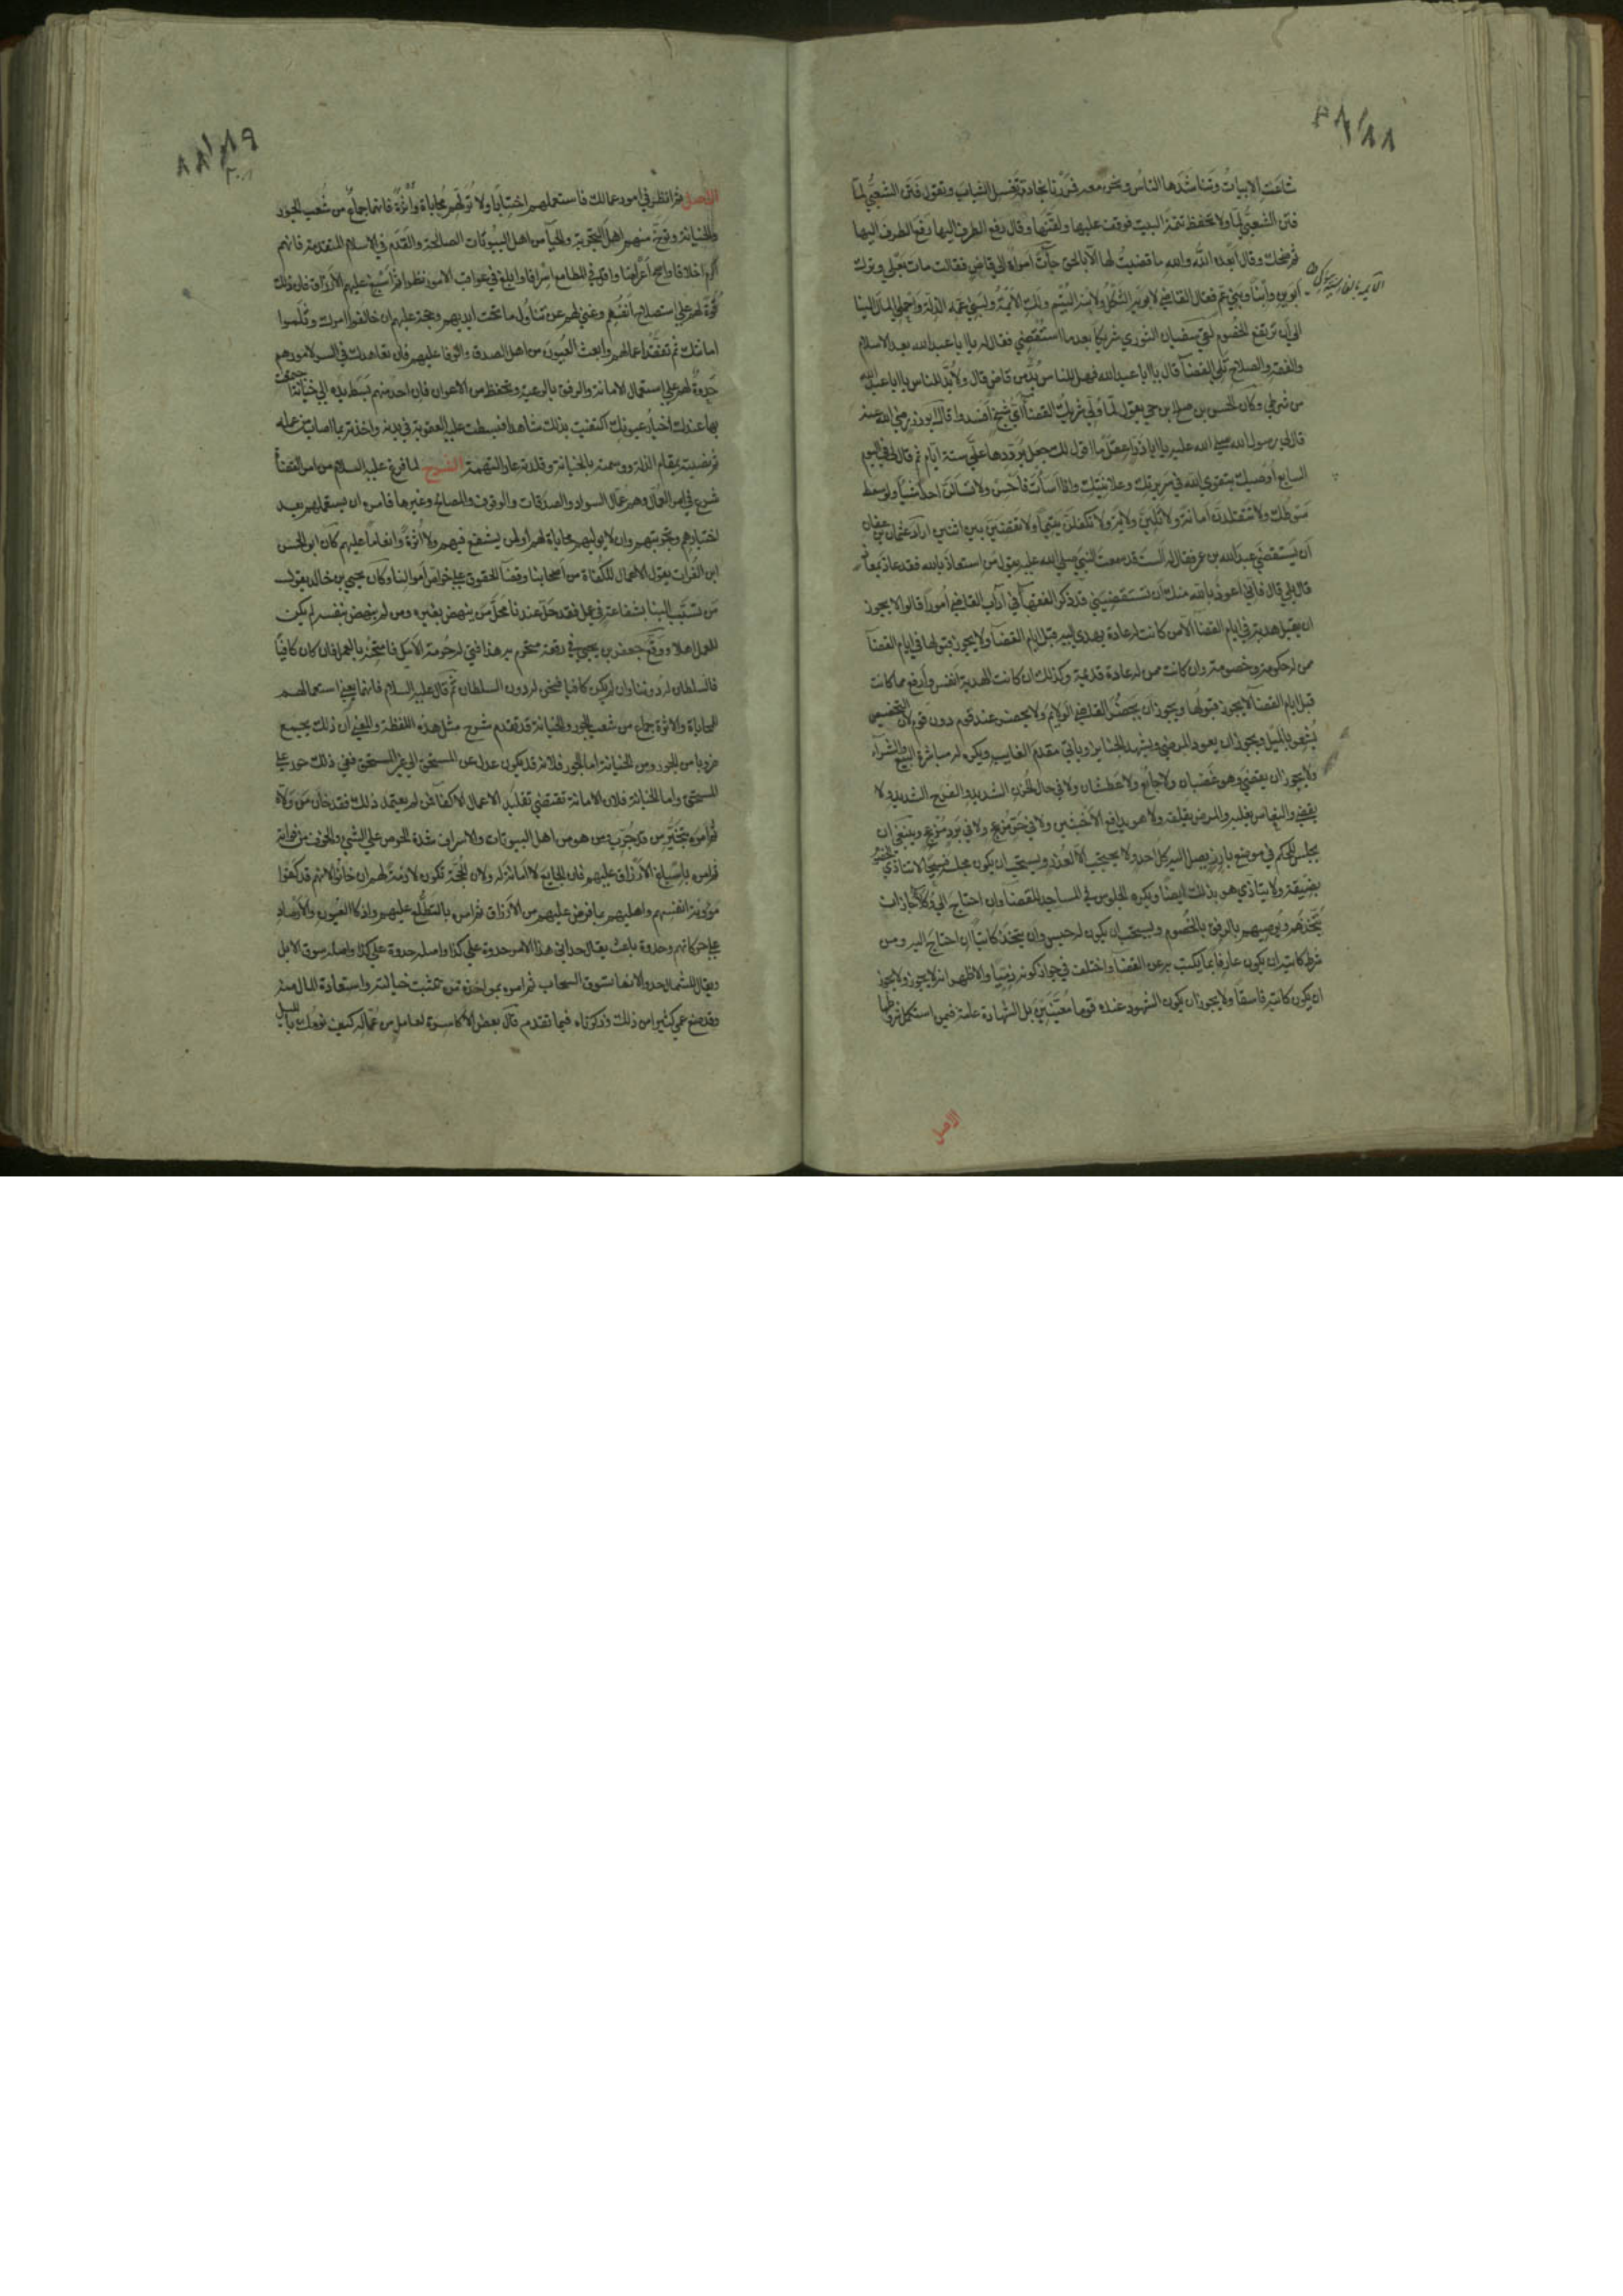 شاعت الابيات وتناشدها الناس ونحن معه فمررنا بخادمة تغسل الثياب وتقول فتن الشعبي لما
فتن الشعبي لما ولا تحفظ تتمة البيت فوقف عليها ولقنها وقال رفع الطرف اليها رفع الطرف اليها
ثم ضحك وقال ابعده الله والله ما قضيت لها الا بالحق جاءت امرأة الى قاض فقالت مات بعلي وترك
ابوين وابنا وبني عم فقال القاضي لابويه الثكل ولابنه اليتم ولك الايمة ولبني عمه الذلة واحملي المال الينا
الى ان ترتفع الخصوم لقي سفيان الثوري شريكا بعد ما استقضي فقال له يا ابا عبدالله بعد الاسلام
والفقه والصلاح تلي القضآ قال يا ابا عبدالله فهل للناس بد من قاض قال ولا بد للناس يا ابا عبدالله
من شرطي وكان الحسن بن صالح بن حي يقول لما ولي شريك القضآ اي شيخ افسدوا قال ابوذر رضي الله عنه
قال لي رسول الله صلى الله عليه يا ابا ذر اعقل ما اقول لك جعل يرددها علي ستة ايام ثم قال لي في اليوم
السابع اوصيك بتقوى الله في سريرتك وعلانيتك واذا اسأت فاحسن ولا تسالن احدا شيئا ولو سقط
سوطك ولا تتقلدن امانة ولا تلين ولاية ولا تكفلن يتيما ولا تقضين بين اثنين اراد عثمان بن عفان
ان يستقضي عبدالله بن عمر فقال له الست قد سمعت النبي صلى الله عليه يقول من استعاذ بالله فقد عاذ بمعاذ
قال بلى قال فاني اعوذ بالله منك ان تستقضيني قد ذكر الفقهآ في آداب القاضي امورا قالوا لا يجوز
ان يقبل هدية في ايام القضآ الا من كانت له عادة يهدي اليه قبل ايام القضآ ولا يجوز قبولها في ايام القضآ
ممن له حكومة وخصومة وان كانت ممن له عادة قديمة وكذلك ان كانت الهدية انفس وارفع مما كانت
قبل ايام القضآ لا يجوز قبولها ويجوز ان يحضر القاضي الولائم ولا يحضر عند قوم دون قوم لان التخصيص
يشعر بالميل ويجوز ان يعود المرضى ويشهد الجنايز وياتي مقدم الغايب ويكره له مباشرة البيع والشرآء
ولا يجوز ان يقضي وهو غضبان ولا جائع ولا عطشان ولا في حال الحزن الشديد والفرح الشديد ولا
يقضي والنعاس يغلبه والمرض يقلقه ولا هو يدافع الاخبثين ولا في حر مزعج ولا في برد مزعج وينبغي ان
يجلس للحكم في موضع بارز يصل اليه كل احد ولا يحتجب الا لعذر ويستحب ان يكون مجلسه فسيحا لا يتاذى
بضيقه ولا يتاذى هو بذلك ايضا ويكره الجلوس في المساجد للقضآ وان احتاج الى وكلاء جاز ان
يتخذهم ويوصيهم بالرفق بالخصوم ويستحب ان يكون له حبس وان يتخذ كاتبا ان احتاج اليه ومن
شرط كاتبه ان يكون عارفا بما يكتب به عن القضآ واختلف في جواز كونه ذميا والاظهر انه لا يجوز ولا يجوز
ان يكون كاتبه فاسقا ولا يجوز ان يكون الشهود عنده قوما معينين بل الشهادة عامة فيمن استكمل شروطها
الاصل
الاصل ثم انظر في امور عمالك فاستعملهم اختبارا ولا تولهم محاباة واثرة فانهما جماع من شعب الجور
والخيانة وتوخ منهم اهل التجربة والحيآ من اهل البيوتات الصالحة والقدم في الاسلام المتقدمة فانهم
اكرم اخلاقا واصح اعراضا واقل في المطامع اشرافا وابلغ في عواقب الامور نظرا ثم اسبغ عليهم الارزاق فان ذلك
قوة لهم على استصلاح انفسهم وغنى لهم عن تناول ما تحت ايديهم وحجة عليهم ان خالفوا امرك وثلموا
امانتك ثم تفقد اعمالهم وابعث العيون من اهل الصدق والوفا عليهم فان تعاهدك في السر لامورهم
حدوة لهم على استعمال الامانة والرفق بالرعية وتحفظ من الاعوان فان احد منهم بسط يده الى خيانة اجتمعت
بها عندك اخبار عيونك اكتفيت بذلك شاهدا فبسطت عليه العقوبة في بدنه واخذته بما اصاب من عمله
ثم نصبته بمقام الذلة ووسمته بالخيانة وقلدته عار التهمة الشرح لما فرغ عليه السلام من امر القضآ
شرع في امر العمال وهم عمال السواد والصدقات والوقوف والمصالح وغيرها فامره ان يستعملهم بعد
اختبارهم وتجربتهم وان لا يوليهم محاباة لهم او لمن يشفع فيهم ولا اثرة وانعاما عليهم كان ابو الحسن
ابن الفرات يقول الاعمال للكفاة من اصحابنا وقضآ الحقوق على خواص اموالنا وكان يحيى بن خالد يقول
من تسبب الينا بشفاعة في عمل فقد حل عندنا محل من ينهض بغيره ومن لم ينهض بنفسه لم يكن
للعمل اهلا ووقع جعفر بن يحيى في رقعة متحرم به هذا فتى له حرمة الامل فامتحنه بالعمل فان كان كافيا
فالسلطان له دوننا وان لم يكن كافيا فنحن له دون السلطان ثم قال عليه السلام فانهما يعني استعمالهم
للمحاباة والاثرة جماع من شعب الجور والخيانة قد تقدم شرح مثل هذه اللفظة والمعنى ان ذلك يجمع
ضروبا من الجور ومن الخيانة اما الجور فلانه قد يكون عدل عن المستحق الى غير المستحق ففي ذلك جور على
المستحق واما الخيانة فلان الامانة تقتضي تقليد الاعمال الاكفآ فمن لم يعتمد ذلك فقد خان من ولاه
ثم امره بتخير من قد جرب ومن هو من اهل البيوتات والاشراف شدة الحرص على الشي والخوف من فواته
ثم امره باسباغ الارزاق عليهم فان الجايع لا امانة له ولان الحجة تكون لازمة لهم ان خانوا لانهم قد كفوا
مؤونة انفسهم واهليهم بما فرض عليهم من الارزاق ثم امره بالتطلع عليهم واذكا العيون والارصاد
على حركاتهم وحدوة باعث يقال حداني هذا الامر حدوة على كذا واصله سوق الابل
ويقال للشمال حدوا لانها تسوق السحاب ثم امره بمواخذة من ثبتت خيانته واستعادة المال منه
وقد صنع عمر كثيرا من ذلك وذكرناه فيما تقدم قال بعض الاكاسرة لعامل من عماله كيف نومك بالليل